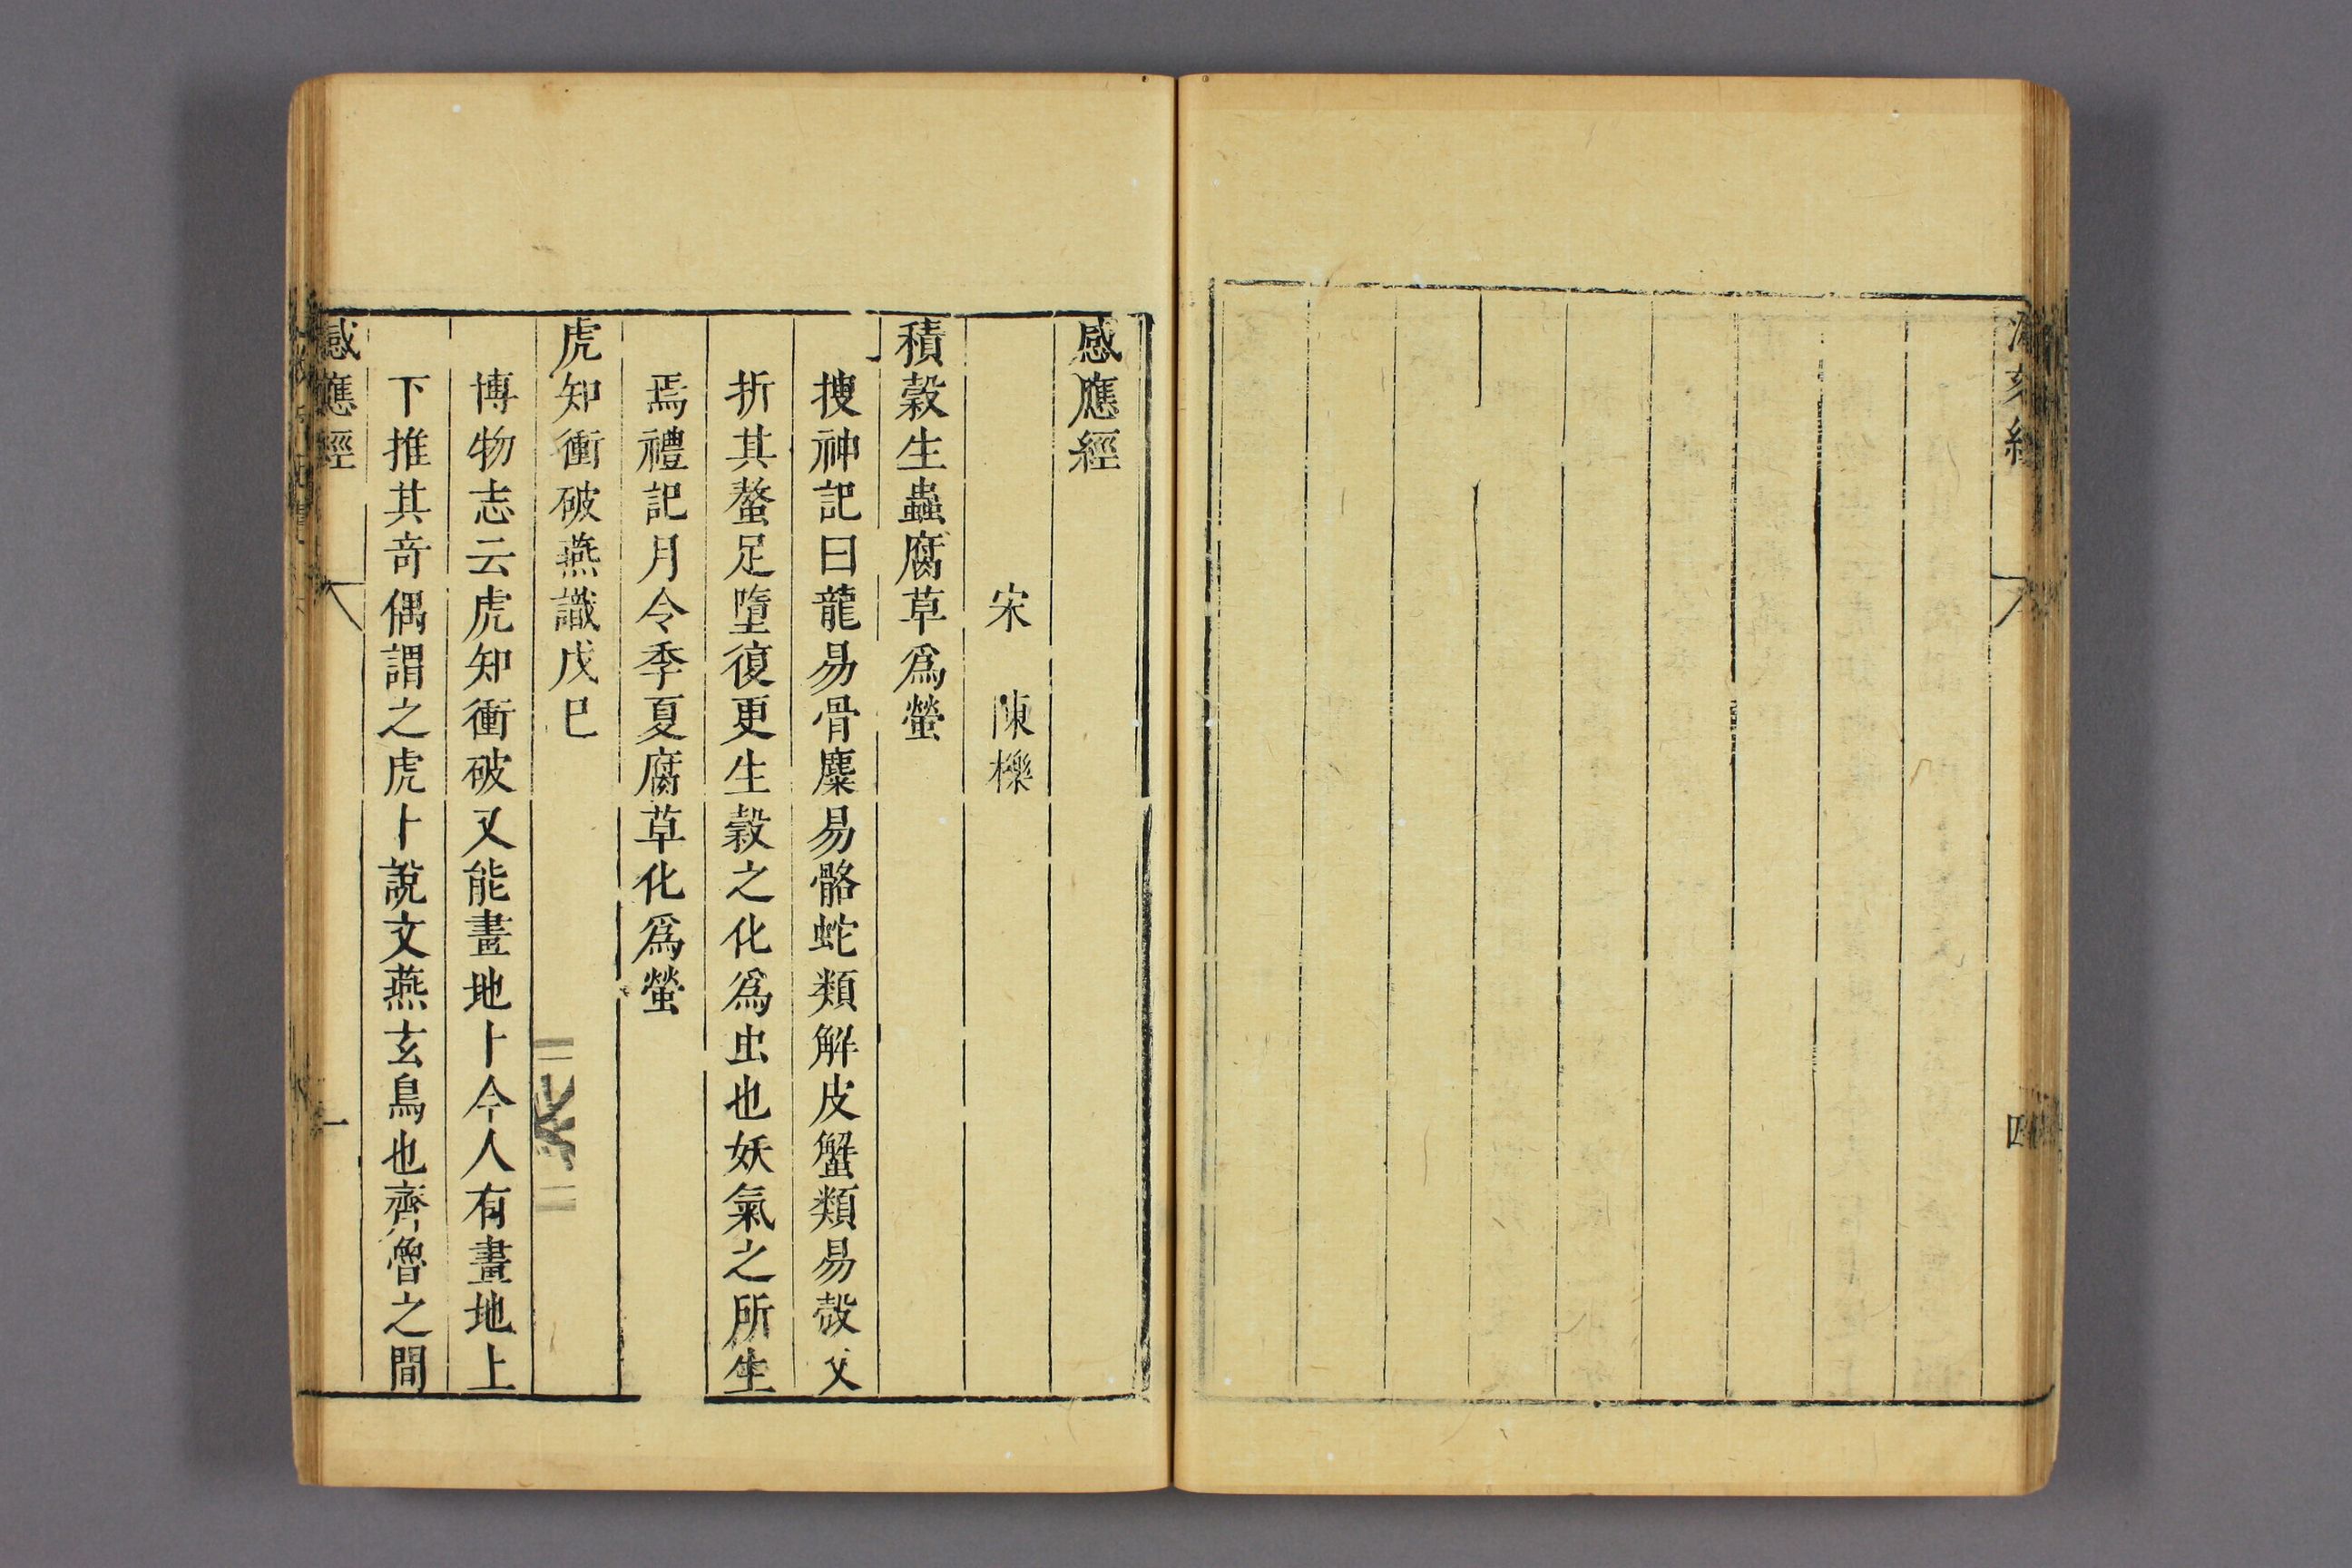 四
感應經
宋 陳櫟
積穀生蟲腐草爲螢
搜神記曰龍易骨麋易骼蛇類解皮蟹類易殼又
折其螯足墮復更生穀之化爲虫也妖氣之所生
焉禮記月令季夏腐草化爲螢
虎知衝破燕識戊巳
博物志云虎知衝破又能畫地卜今人有畫地上
下推其奇偶謂之虎卜說文燕玄鳥也齊魯之間
感應經 一